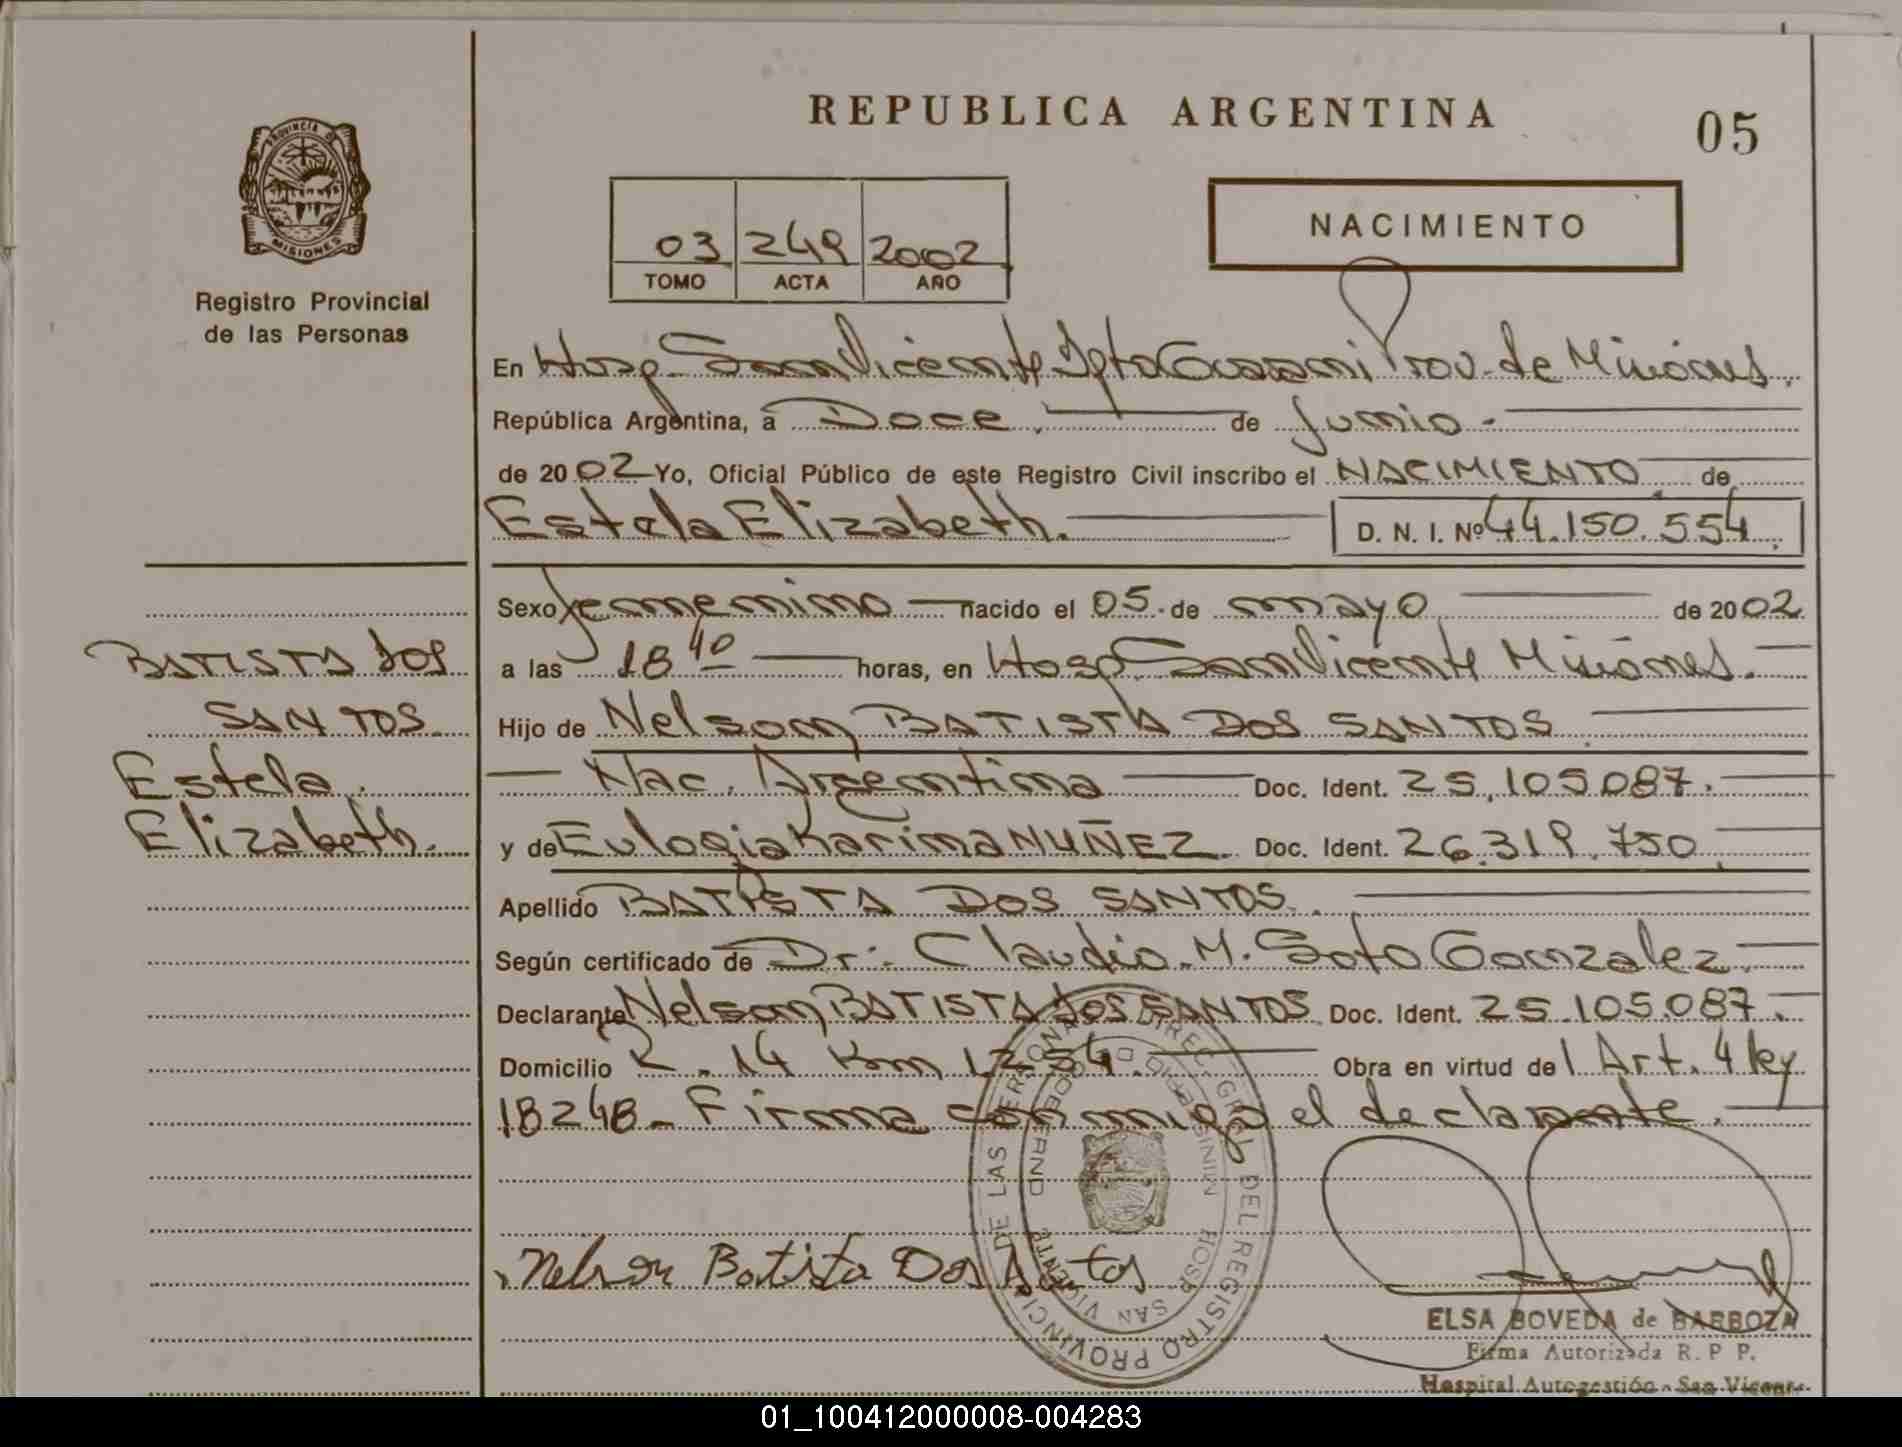 REPUBLICA ARGENTINA
05
PROVINCIA DE
MISIONES
Registro Provincial
de las Personas
03 249 2002
TOMO ACTA AÑO
NACIMIENTO
En Hosp. San Vicente Dpto Guaraní Prov. de Misiones.
República Argentina, a Doce. de junio.
de 2002 Yo, Oficial Público de este Registro Civil inscribo el NACIMIENTO de
Estela Elizabeth. D. N. I. Nº 44.150.554.
Sexo femenino nacido el 05. de mayo de 2002
a las 18 40 horas, en Hosp San Vicente Misiones.
Hijo de Nelson BATISTA DOS SANTOS
Nac. Argentina Doc. Ident. 25.105.087.
y de Eulogia Karina NUÑEZ. Doc. Ident. 26.319.750.
Apellido BATISTA DOS SANTOS.
Según certificado de Dr. Claudio. M. Soto Gonzalez.
Declarante Nelson BATISTA DOS SANTOS Doc. Ident. 25.105.087.
Domicilio R. 14 Km 1254. Obra en virtud del Art. 4 ley
18248 - Firma conmigo el declarante.
BATISTA DOS
SANTOS.
Estela.
Elizabeth.
Nelson Batista Dos Santos
DIREC. GRAL. DEL REGISTRO PROVINCIAL DE LAS PERSONAS
HOSP. SAN VICENTE
ELSA BOVEDA de BARBOZA
Firma Autorizada R. P P.
Hospital Autogestión - San Vicente
01_100412000008-004283